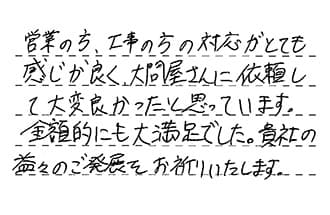 営業の方、工事の方の対応がとても
感じが良く、大問屋さんに依頼し
て大変良かったと思っています。
金額的にも大満足でした。貴社の
益々のご発展をお祈りいたします。